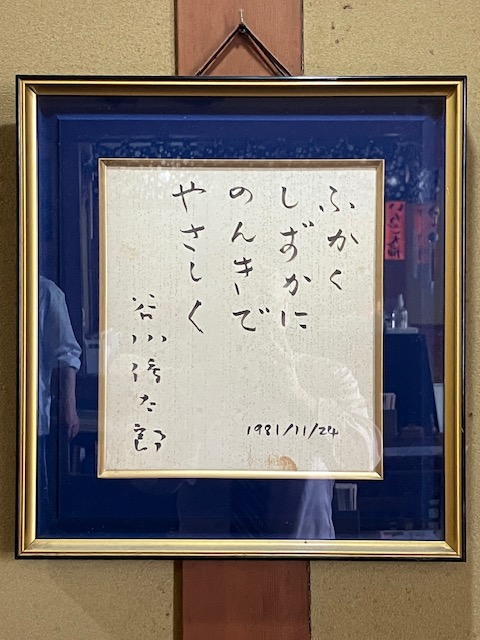 ふかく
しずかに
のんきで
やさしく
谷川俊太郎
1981/11/24